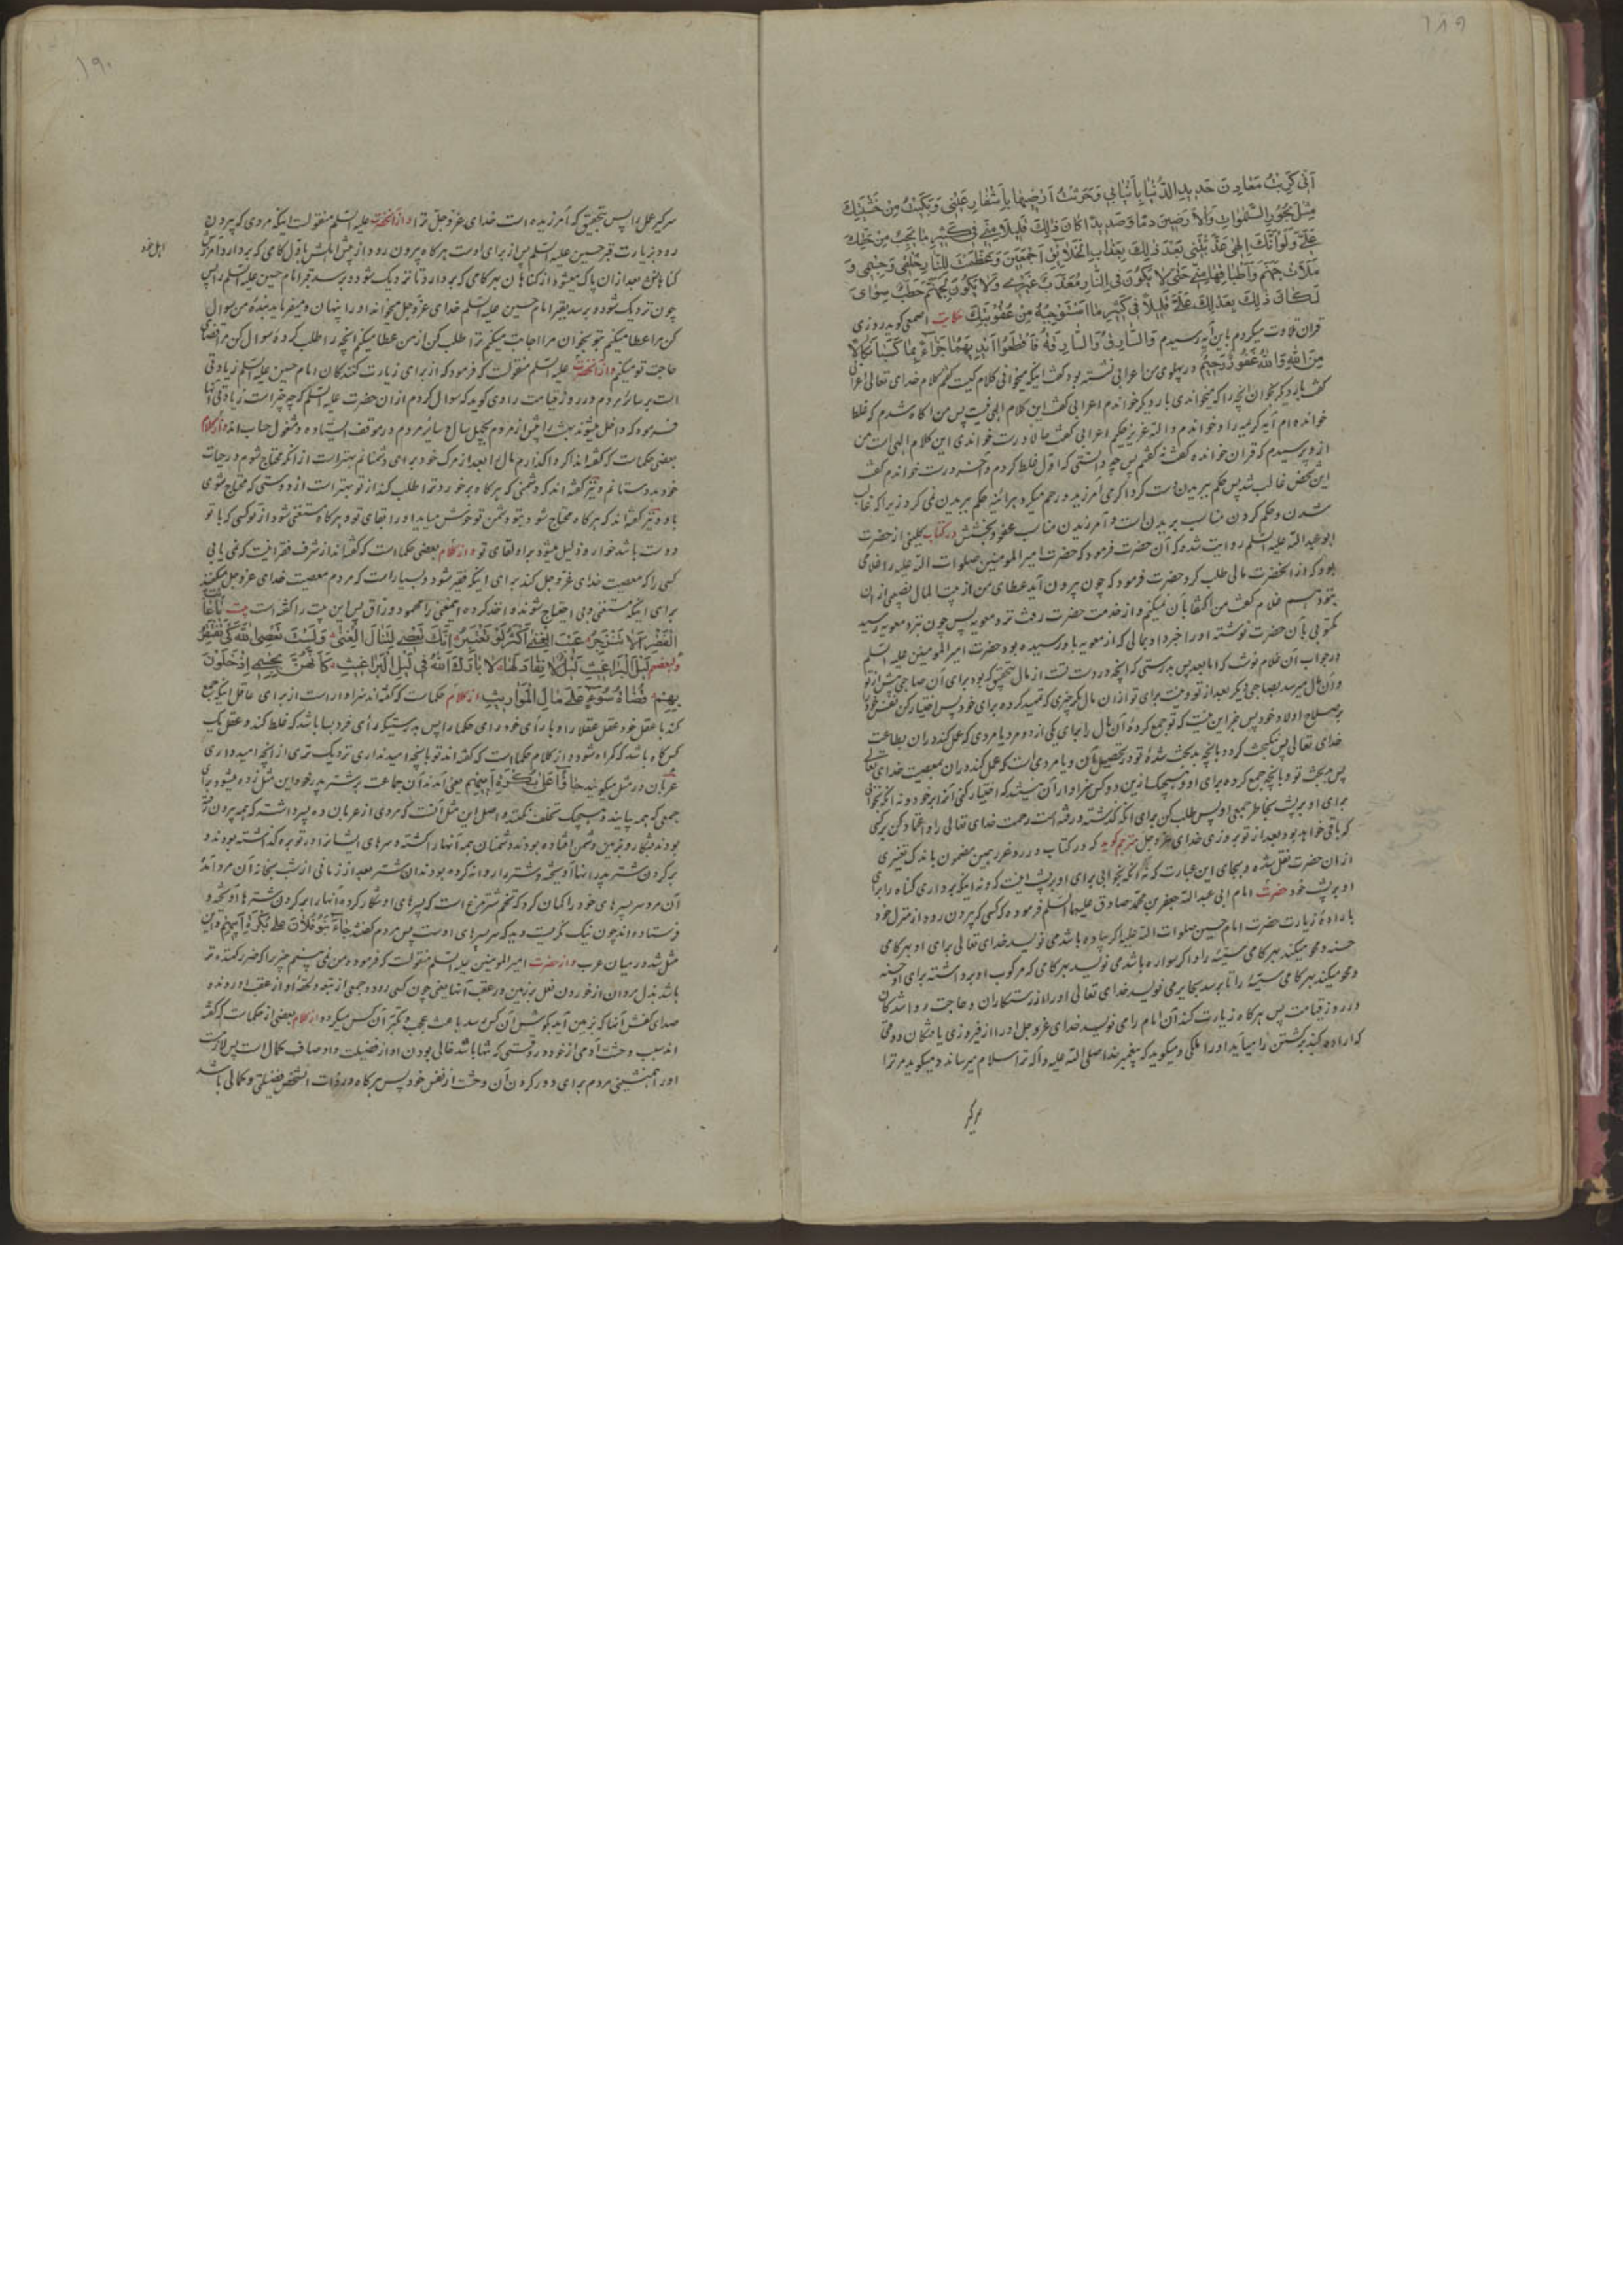 ١٨٩
آنی کربت معادن حدید الدنیا بأنیابی و حرثت ارضیها باشفار عینی و بکیت من خشیتک
مثل بحور السموات و الارضین دما و صدیدا کان ذلک قلیلا منی فی کثیر ما یجب من حقک
علیّ و لو انک الهی عذبتنی بعد ذلک بعذاب الخلائق اجمعین و عظمت للنار خلقی و جسمی و
ملأت جهنم و اطباقها منی حتی لا یکون فی النار معذب غیری و لا یکون لجهنم حطب سوای
لکان ذلک بعدلک علیّ قلیلا فی کثیر ما استوجبه من عقوبتک حکایت اصمعی کوید روزی
قران تلاوت میکردم باین آیه رسیدم و السارق و السارقة فاقطعوا ایدیهما جزاء بما کسبا نکالا
من الله والله غفور رحیم در پهلوی من اعرابی نشسته بود کفت اینکه میخوانی کلام کیست کفتم کلام خدای تعالی اعرابی
کفت بار دیکر بخوان انچه را که میخواندی بار دیکر خواندم اعرابی کفت این کلام الهی نیست پس من آکاه شدم که غلط
خوانده ام آیه کریمه را و خواندم والله عزیز حکیم اعرابی کفت حالا درست خواندی این کلام الهی است من
از و پرسیدم که قران خوانده کفت نه کفتم پس چه دانستی که اول غلط کردم و آخر درست خواندم کفت
این شخص غالب شد پس حکم ببریدن دست کرد اکر می آمرزید و رحم میکرد هرآینه حکم ببریدن نمی کرد زیرا که غالب
شدن و حکم کردن مناسب بریدن است و آمرزیدن مناسب عفو و بخشش در کتاب کلینی از حضرت
ابو عبد الله علیه السلم روایت شده که آن حضرت فرمود که حضرت امیر المومنین صلوات الله علیه را غلامی
بود که از انحضرت مالی طلب کرد حضرت فرمود که چون بیرون آید عطای من از بیت المال نصیبی از ان
بتو دهم غلام کفت من اکتفا بآن نمیکنم و از خدمت حضرت رفت نزد معویه پس چون نزد معویه رسید
مکتوبی بآن حضرت نوشته او را خبر داد بمالی که از معویه باو رسیده بود حضرت امیر المومنین علیه السلم
در جواب آن غلام نوشت که اما بعد پس بدرستی که انچه در دست تست از مال بتحقیق که بوده برای آن صاحبی پیش از تو
و آن مال میرسد بصاحبی دیکر بعد از تو و نیست برای تو از ان مال مکر چیزی که تمهید کرده برای خود پس اختیار کن نفس خود را
بر صلاح اولاد خود پس جز این نیست که تو جمع کرده آن مال را بجای یکی از دو مرد یا مردی که عمل کند در ان بطاعت
خدای تعالی پس نیکبخت کردد بانچه بدبخت شده تو در تحصیل آن و یا مردی است که عمل کند در ان معصیت خدای تعالی
پس بدبخت تو بانچه جمع کرده برای او و هیچیک ازین دو کس سزاوار آن نیستند که اختیار کنی آنها را بر خود و نه انکه بخوابی
برای او بر پشت بخاطر جمعی او پس طلب کن برای انکه کذشته و رفته است رحمت خدای تعالی را و اعتماد کن بر کسی
که باقی خواهد بود بعد از تو بر روزی خدای عز و جل مترجم کوید که در کتاب درر و غرر همین مضمون باندک تغییری
از ان حضرت نقل شده و بجای این عبارت که نه انکه بخوابی برای او بر پشت اینست که و نه اینکه برداری کناه را برای
او بر پشت خود حضرت امام ابی عبد الله جعفر بن محمد صادق علیهما السلم فرموده که کسی که بیرون رود از منزل خود
باراده زیارت حضرت امام حسین صلوات الله علیه اکر پیاده باشد می نویسد خدای تعالی برای او بهر کامی
حسنه و محو میکند بهر کامی سیئه را و اکر سواره باشد می نویسد بهر کامی که مرکوب او برداشته برای او حسنه
و محو میکند بهر کامی سیئه را تا برسد بحایر می نویسد خدای تعالی او را از رستکاران و حاجت روا شدکان
در روز قیامت پس هرکاه زیارت کند آن امام را می نویسد خدای عز و جل او را از فیروزی یافتکان و وقتی
که اراده کند برکشتن را میآید او را ملکی و میکوید که پیغمبر خدا صلی الله علیه و آله ترا سلام میرساند و میکوید مر ترا
سرکیر
١٩٠
سرکیر عمل را پس بتحقیق که آمرزیده است خدای عز و جل ترا و از انحضرت علیه السلم منقولست اینکه مردی که بیرون
رود بزیارت قبر حسین علیه السلم پس از برای اوست هرکاه بیرون رود از پیش اهلش باول کامی که بردارد آمرزش
اهل خود
کناهانش بعد از ان پاک میشود از کناهان بهر کامی که بردارد تا نزدیک شود و برسد بقبر امام حسین علیه السلم را پس
چون نزدیک شود و برسد بقبر امام حسین علیه السلم خدای عز و جل میخواند او را پنهان و میفرماید بنده من سوال
کن مرا عطا میکنم بتو بخوان مرا اجابت میکنم ترا طلب کن از من عطا میکنم انچه را طلب کرده سوال کن مرا قضای
حاجت تو میکنم و از انحضرت علیه السلم منقولست که فرمود که از برای زیارت کنندکان امام حسین علیه السلم زیادتی
است بر سائر مردم در روز قیامت راوی کوید که سوال کردم از ان حضرت علیه السلم که چه چیز است زیادتی آنها
فرمود که داخل میشوند بهشت را پیش از مردم بچهل سال و سایر مردم در موقف ایستاده و مشغول حساب اند و از کلام
بعضی حکماست که کفته اند اکر واکذارم مال را بعد از مرک خود برای دشمنانم بهتر است از انکه محتاج شوم در حیات
خود بدوستانم و نیز کفته اند که دشمنی که هرکاه برخورد ترا طلب کند از تو بهتر است از دوستی که محتاج شوی
باو و نیز کفته اند که هرکاه محتاج شود بتو دشمن تو خوش میاید او را بقای تو و هرکاه مستغنی شود از تو کسی که با تو
دوست باشد خوار و ذلیل میشود بر او لقای تو و از کلام بعضی حکما است که کفته اند از شرف فقر اینست که نمی یابی
کسی را که معصیت خدای عز و جل کند برای اینکه فقیر شود و بسیار است که مردم معصیت خدای عز و جل میکنند
برای اینکه مستغنی و بی احتیاج شوند و اخذ کرده اینمعنی را محمود وراق پس این بیت را کفته است بیت یا عائب
الفقر الا تنزجر عیب الغنی اکثر لو تعتبر انک تعصی لتنال الغنی و لست تعصی الله کی تفتقر
و لبعضهم لیل البراغیث لیل لا نفاد لها لا بارک الله فی لیل البراغیث کانهن بجسمی اذ خلون
بهن قضاة سوء علی مال المواریث از کلام حکماست که کفته اند سزاوار است از برای عاقل اینکه جمع
کند با عقل خود عقل عقلا را و با رأی خود رای حکما را پس بدرستیکه رأی فرد بسا باشد که غلط کند و عقل یک
کس کاه باشد که کمراه شود و از کلام حکماست که کفته اند تو بانچه امید نداری نزدیک تری از انچه امید داری
عربان در مثل میکویند جاؤا علی بکرة ابیهم یعنی آمدند آن جماعت بر شتر پدر خود این مثل زده میشود برای
جمعی که همه بیایند و هیچیک تخلف نکنند و اصل این مثل آنست که مردی از عربان ده پسر داشت که همه بیرون رفته
بودند بشکار و بزمین دشمن افتاده بودند و دشمنان همه آنها را کشته و سرهای ایشان را در توبره کذاشته بودند و
برکردن شتر پدر آنها آویخته و شتر را روانه کرده بودند ان شتر بعد از زمانی از شب بخانه آن مرد آمد
آن مرد سر پسرهای خود را کمان کرد که تخم شترمرغ است که پسرهای او شکار کرده و آنها را بر کردن شترها آویخته و
فرستاده اند چون نیک نکریست دید که سر پسرهای اوست پس مردم کفتند جاء بنو فلان علی بکرة ابیهم و این
مثل شد در میان عرب و از حضرت امیر المومنین علیه السلم منقولست که فرموده من نمی بینم چیز را که ضرر کننده تر
باشد بدل مردان از خوردن نعل بر زمین در عقب آنها یعنی چون کسی رود و جمعی از تبعه و لحقه او از عقب او روند و
صدای کفش آنها که بر زمین آید بکوش آن کس رسد باعث عجب و تکبر آن کس میکردد و از کلام بعضی از حکماست که کفته
اند سبب وحشت آدمی از خود در وقتی که تنها باشد خالی بودن او از فضیلت و اوصاف کمال است پس لازمست
او را همنشینی مردم برای دور کردن آن وحشت از نفس خود پس هرکاه در ذات انشخص فضیلتی و کمالی باشد